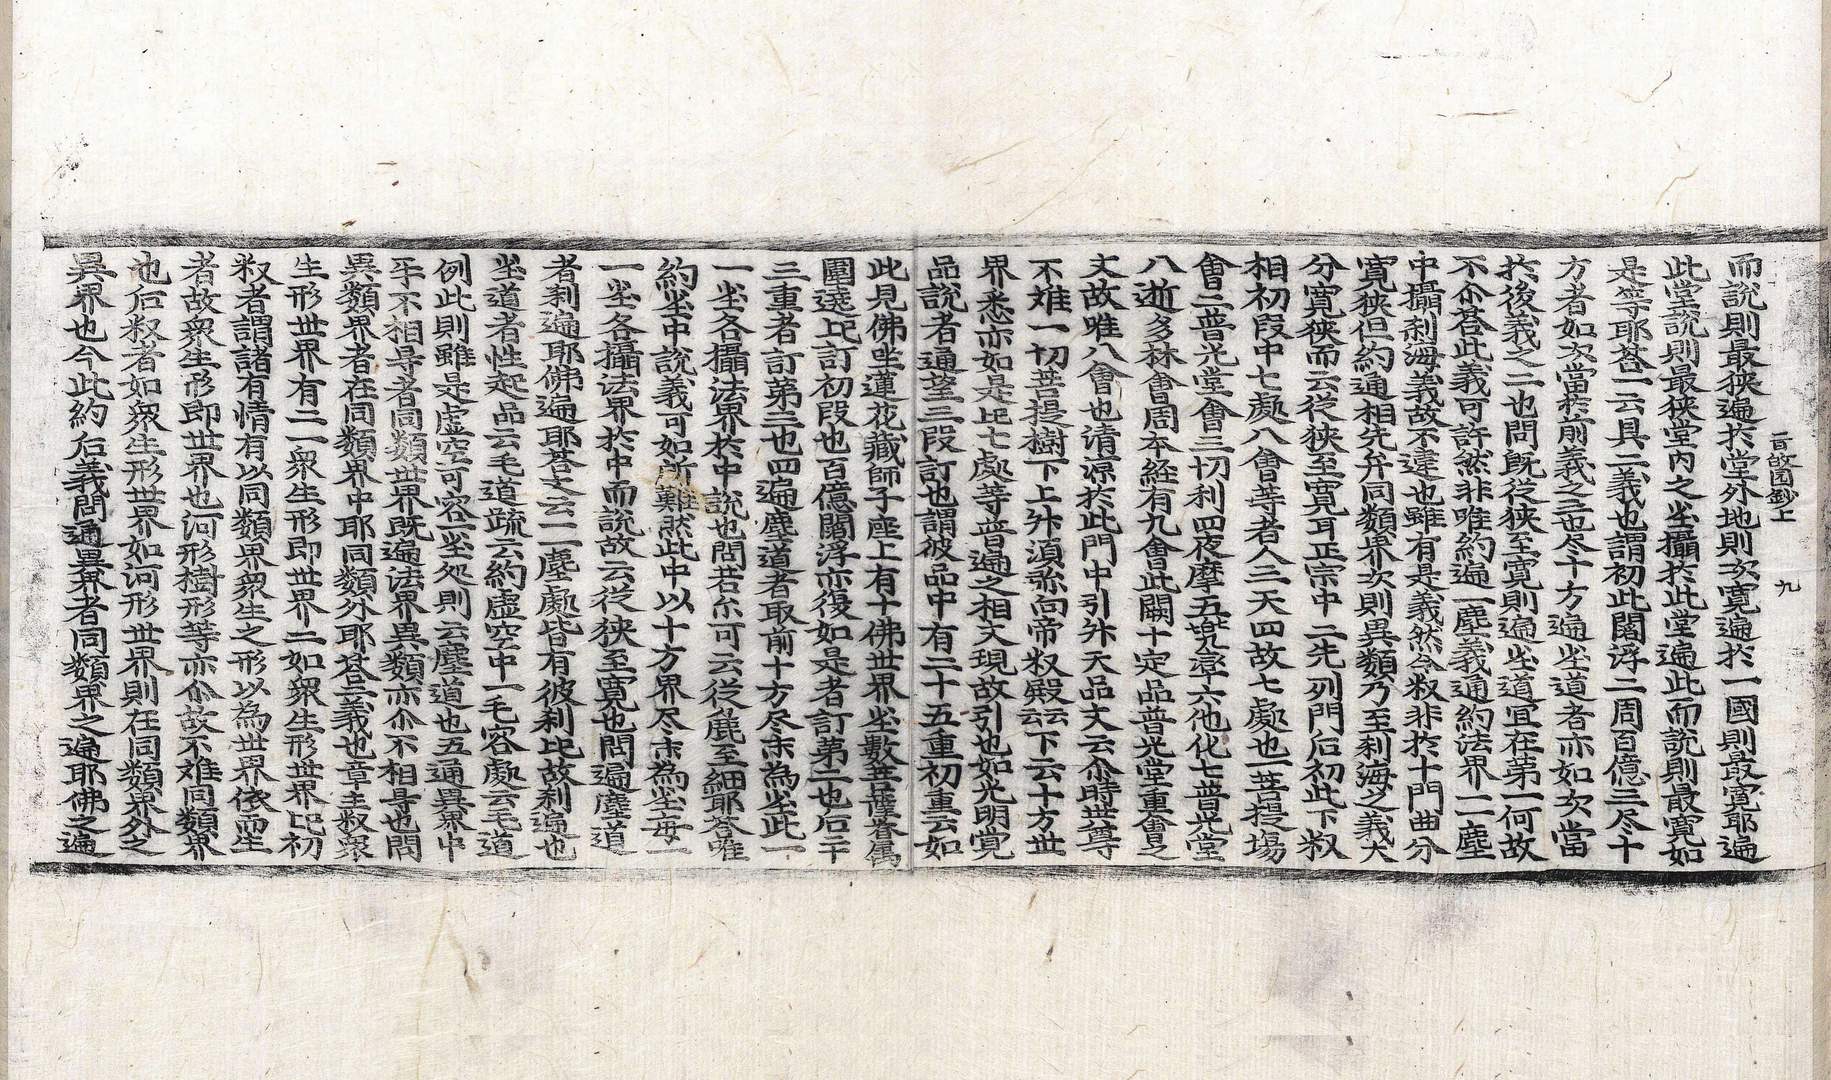 百 故圎鈔上 九
而說則最狹遍於堂外地則次寬遍於一國則最寬耶遍
此堂說則最狹堂內之坐攝於此堂遍此而說則最寬如
是等耶荅一云具二義也謂初此閻浮二周百億三尽十
方者如次當於前義之三也尽十方遍坐道者亦如次當
於後義之二也問旣從狹至寬則遍坐道宜在第一何故
不尒荅此義可許然非唯約遍一塵義通約法界一一塵
中攝刹海義故不違也雖有是義然今叙非於十門曲分
寬狹但約通相先弁同類界次則異類乃至刹海之義大
分寬狹而云從狹至寬耳正宗中 二先列門后初此下叙
相初段中七處八會等者人三天四故七處也一菩提場
會二普光堂會三忉利四夜摩五兜率六他化七普光堂
八逝多林會周本經有九會此闕十定品普光堂重會之
文故唯八會也清凉於此門中引升天品文云尒時世尊
不難一切菩提樹下上升須弥向帝釈殿云云下云十方世
界悉亦如是此七處等普遍之相文現故引也如光明覺
品說者通望三段訂也謂彼品中有二十五重初重云如
此見佛坐蓮花藏師子座上有十佛世界坐數菩薩眷属
圍遶此訂初段也百億閻浮亦復如是者訂第二也后二十
三重者訂第三也四遍塵道者取前十方尽末為坐此一
一坐各攝法界於中說也問若尒可云從麁至細耶荅唯
約坐中說義可如所難然此中以十方界尽末為坐每一
一坐各攝法界於中而說故云從狹至寬也問遍塵道
者刹遍耶佛遍耶荅文云一一塵處皆有彼刹此故刹遍也
坐道者性起品云毛道䟽云約虛空中一毛容處云毛道
例此則雖是虛空可容一坐処則云塵道也五通異界中
乎不相㝵者同類世界旣遍法界異類亦尒不相㝵也問
異類界者在同類界中耶同類外耶荅二義也章主叙衆
生形世界有二一衆生形即世界二如衆生形世界此初
叙者謂諸有情有以同類界衆生之形以為世界依而生
者故衆生形即世界也河形樹形等亦尒故不難同類界
也后叙者如衆生形世界如河形世界則在同類界外之
異界也今此約后義問通異界者同類界之遍耶佛之遍